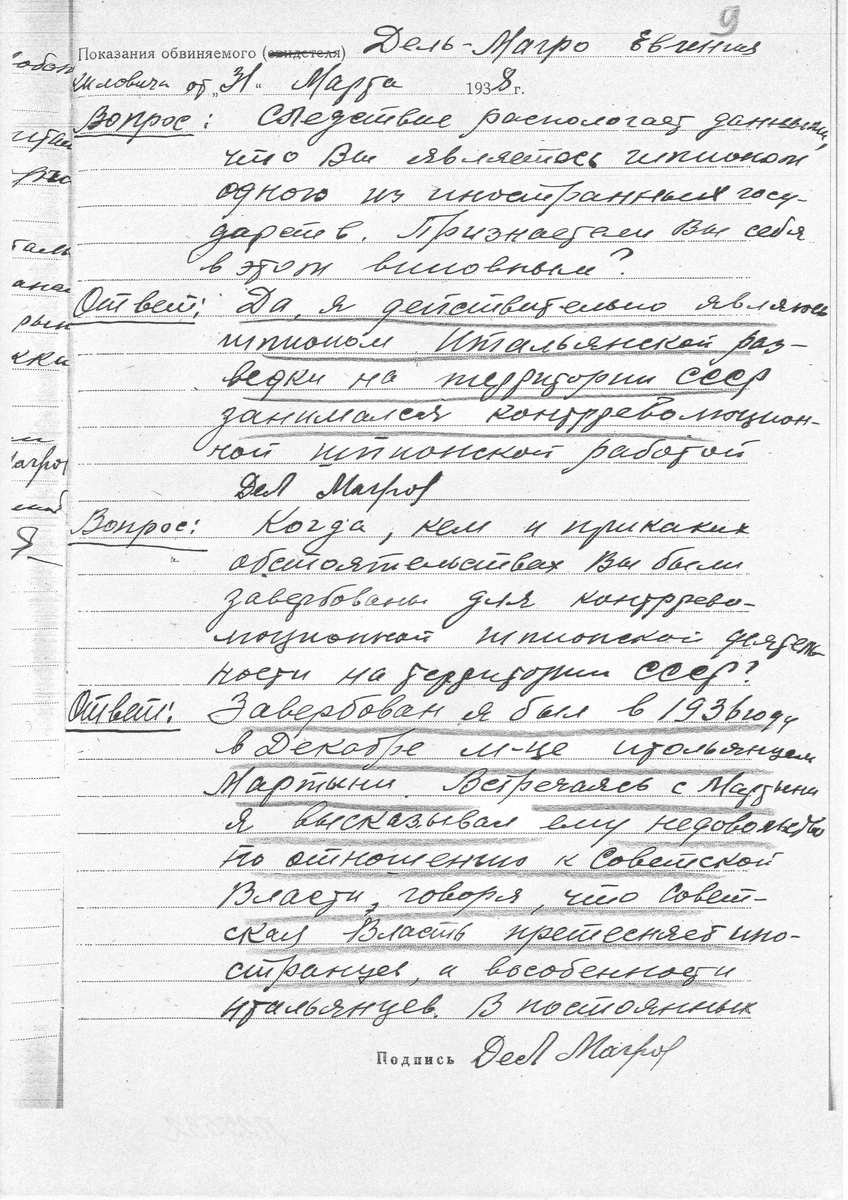 9
Показания обвиняемого (свидетеля) Дель-Магро Евгения
иловича от „31“ Марта 1938 г.
Вопрос: Следствие распологает данными,
что Вы являетесь шпионом
одного из иностранных госу-
дарств. Признаетели Вы себя
в этом виновным?
Ответ: Да, я действительно являюсь
шпионом Итальянской раз-
ведки на территории СССР
занимался контрреволюцион-
ной шпионской работой
Дел Магро
Вопрос: Когда, кем и прикаких
обстоятельствах Вы были
завербованы для контррево-
люционной шпионской деятель
ности на территории СССР?
Ответ: Завербован я был в 1936 году
в Декабре м-це итольянцем
Мартыни. Встречаясь с Мартыни
я высказывал ему недовольство
по отношению к Советской
Власти, говоря, что Совет-
ская Власть претесняет ино-
странцев, а вособенности
итальянцев. В постоянных
Подпись Дел Магро